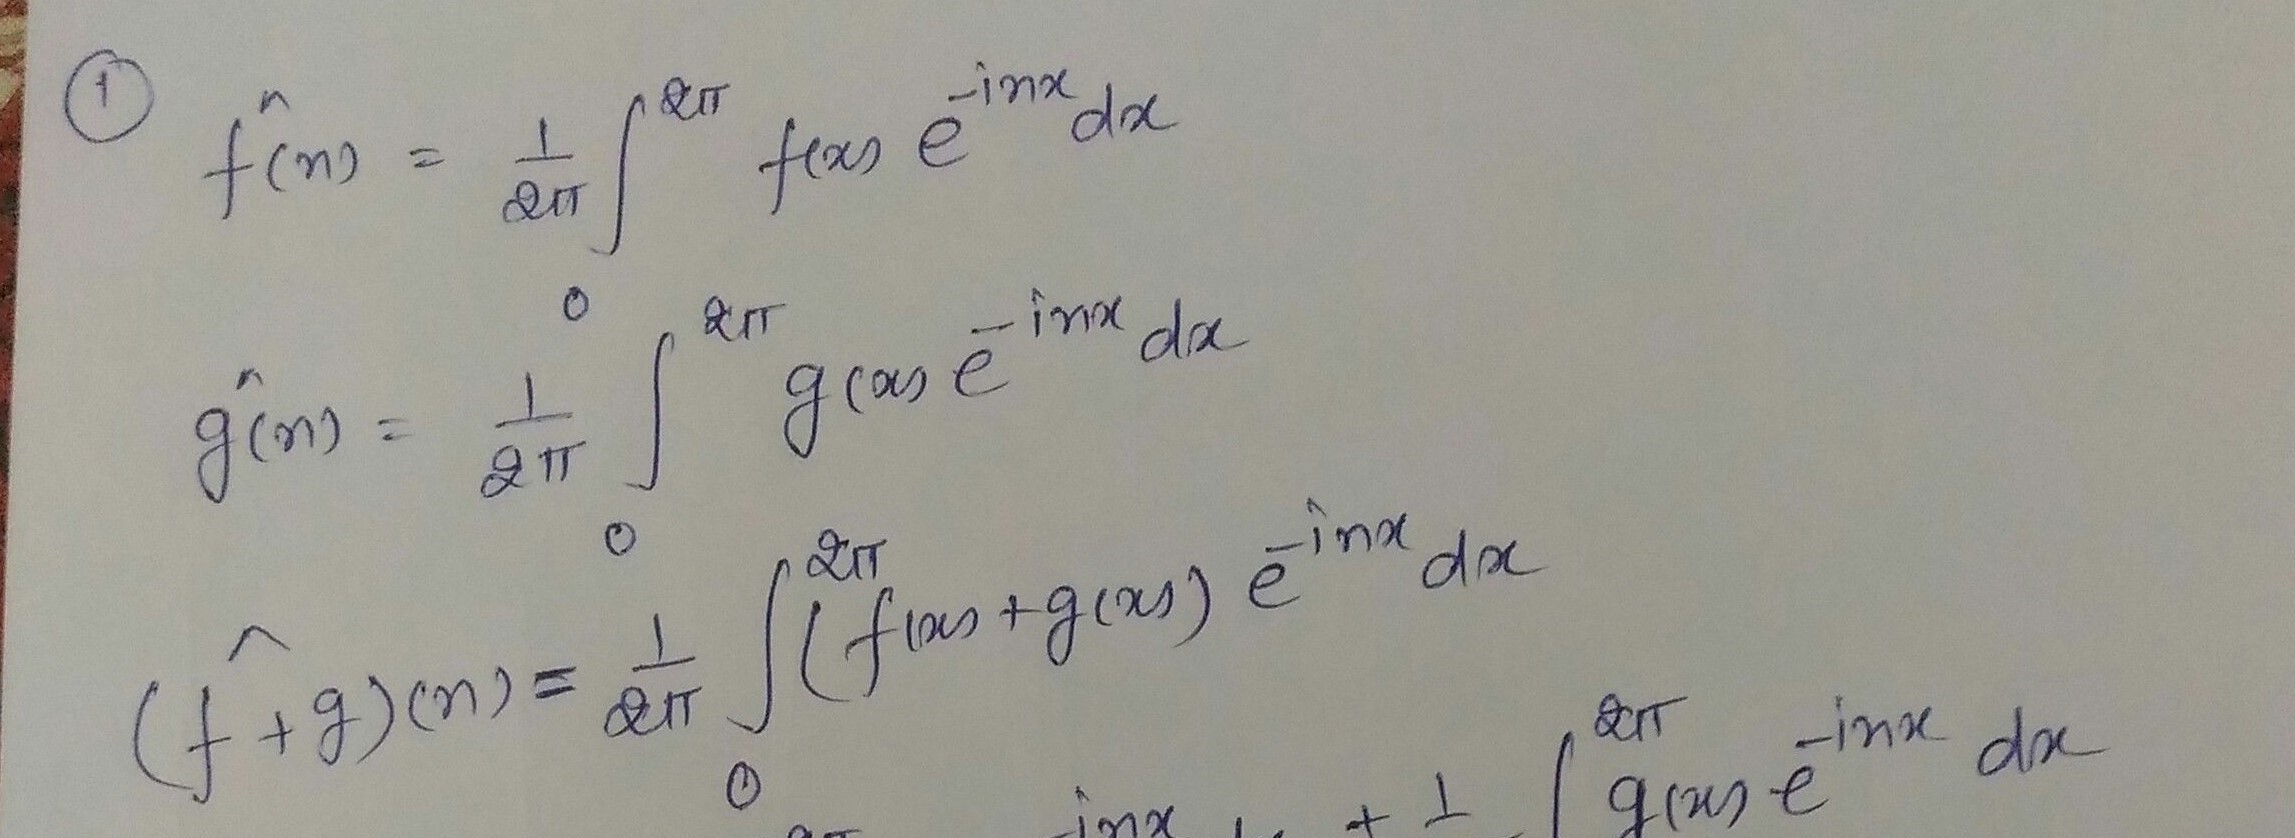 ① f̂(n) = 1/2π ∫₀^2π f(x) e^-inx dx
ĝ(n) = 1/2π ∫₀^2π g(x) e^-inx dx
(f+g)^(n) = 1/2π ∫₀^2π (f(x)+g(x)) e^-inx dx
2π -inx + 1 ∫^2π g(x) e^-inx dx